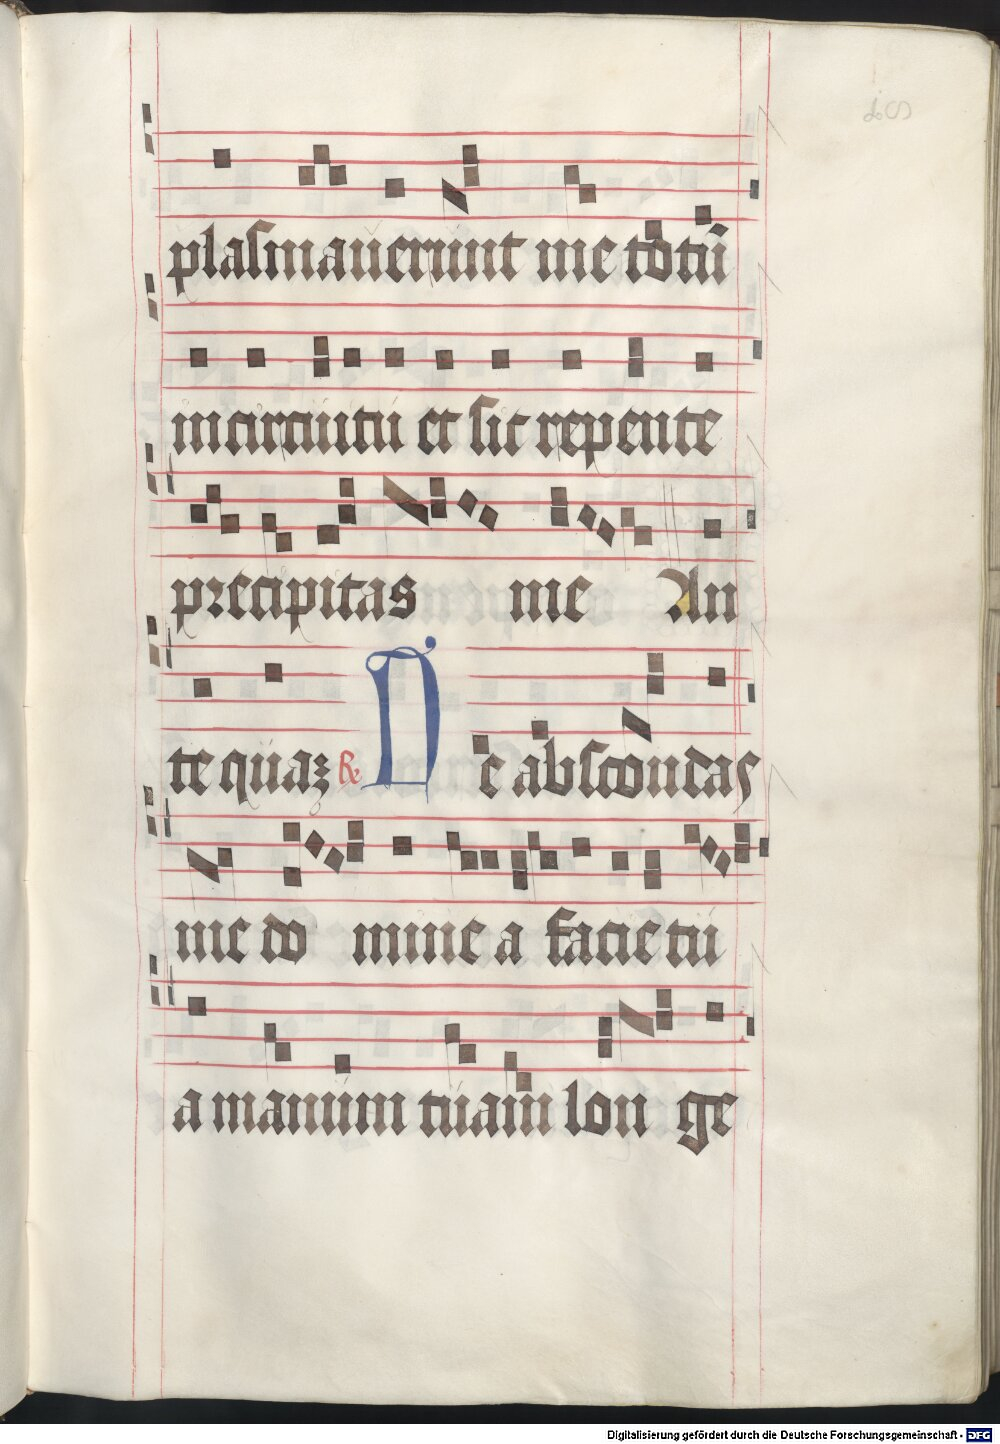 plasmaverunt me totū
in circuitu et sic repente
precipitas me An
te quaʒ ℟ Ne abscondas
me do mine a facie tu
a manum tuam lon ge
Digitalisierung gefördert durch die Deutsche Forschungsgemeinschaft - DFG